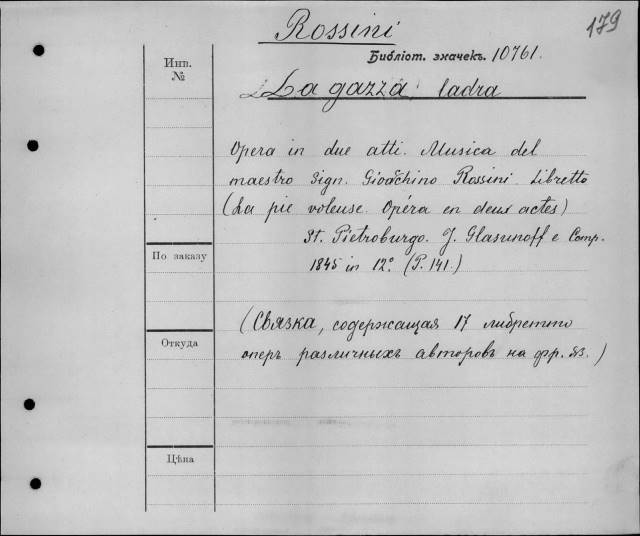 Rossini
179
Библіот. значекъ. 10761.
Инв.
№
La gazza ladra
Opera in due atti. Musica del
maestro Sign. Gioachino Rossini. Libretto
(La pie voleuse. Opéra en deux actes)
St. Pietroburgo. J. Glasunoff e Comp.
По заказу
1845 in 12º. (P. 141.)
(Связка, содержащая 17 либретто
Откуда
оперъ различныхъ авторовъ на фр. яз.)
Цѣна